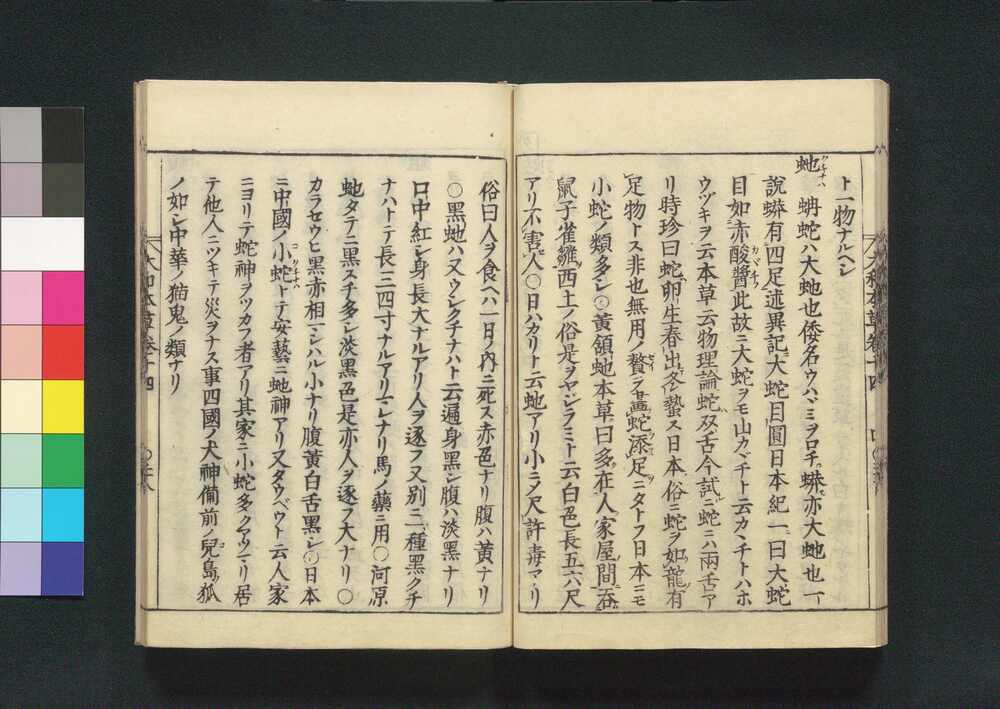 ト一物ナルヘシ
蚺蛇ハ大虵也倭名ウハヾミヲロチ蟒亦大虵也一
說蟒有四足述異記ニ大蛇目圓日本紀一曰大蛇
目如赤酸醬此故ニ大蛇ヲモ山カヾチト云カヾチトハホ
ウツキヲ云本草云物理論蛇双舌今試ニ蛇ニハ兩舌ア
リ時珍曰蛇卵生春出冬蟄ス日本俗ニ蛇ヲ如龍有
足物トス非也無用ノ贅ヲ畫蛇添足ニタトフ日本ニモ
小蛇ノ類多シ○黃頷虵本草曰多在人家屋間吞
鼠子雀雛西土ノ俗是ヲヤジラミト云白色長五六尺
アリ不害人○日ハカリト云虵アリ小ラノ尺許毒アリ
俗曰人ヲ食ヘハ一日ノ內ニ死ス赤色ナリ腹ハ黃ナリ
○黑虵ハ又ウシクチナハト云遍身黑シ腹ハ淡黑ナリ
口中紅シ身長大ナルアリ人ヲ逐フ又別ニ一種黑クチ
ナハトテ長三四寸ナルアリマレナリ馬ノ藥ニ用○河原
虵タテニ黑スチ多シ淡黑色是亦人ヲ逐フ大ナリ○
カラセウヒ黑赤相マシハル小ナリ腹黃白舌黑シ○日本
ニ中國ノ小蛇トテ安藝ニ虵神アリ又タウベウト云人家
ニヨリテ蛇神ヲツカフ者アリ其家ニ小蛇多クアツマリ居
テ他人ニツキテ災ヲナス事四國ノ犬神備前ノ兒島ノ狐
ノ如シ中華ノ猫鬼ノ類ナリ
大和本草卷十四
大和本草卷十四